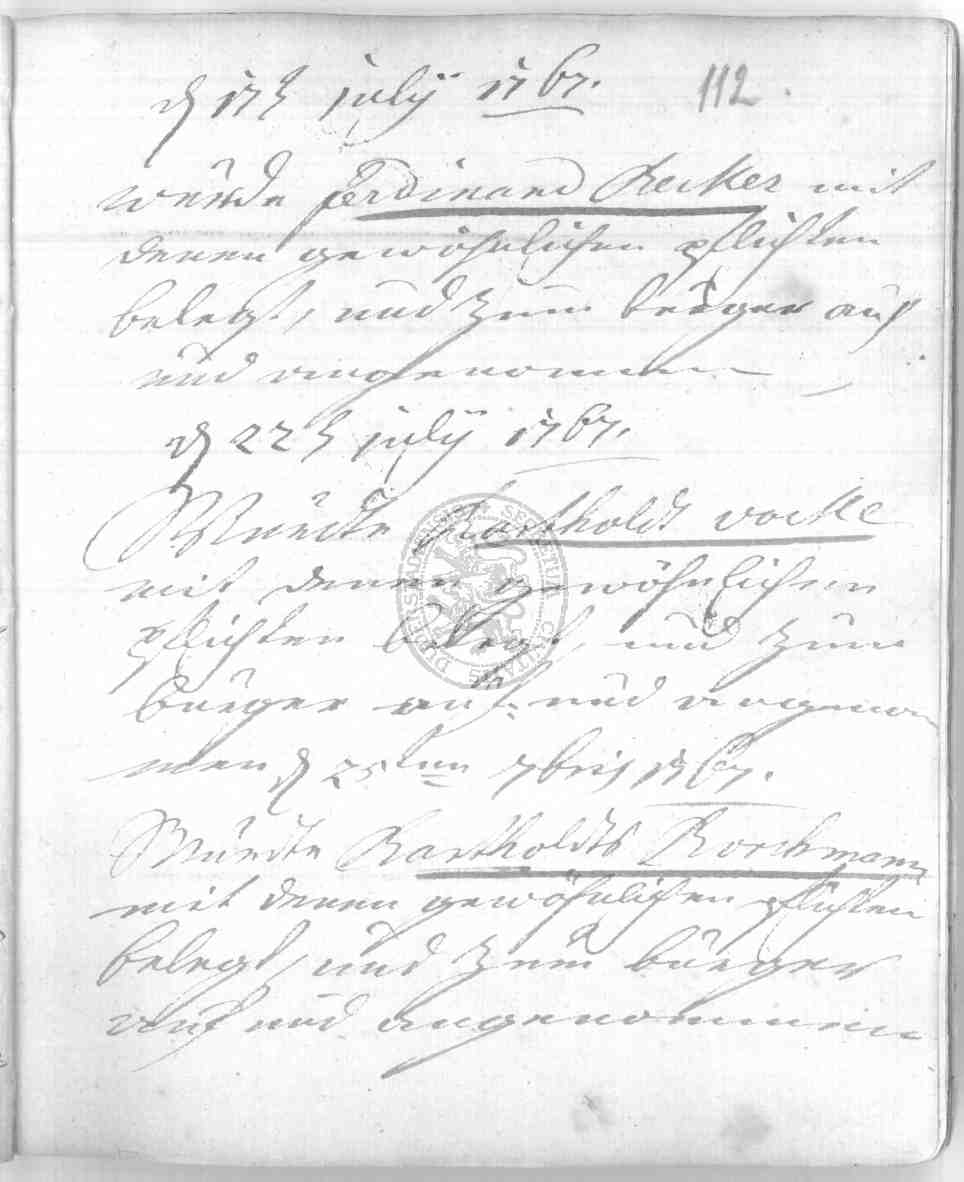 d 17t julÿ 1767. 112.
wurde ferdinand Becker mit
denen gewöhnlichen pflichten
belegt, und zum bürger auf
und angenommen
d 22t julÿ 1767.
Wurde Bartholdt vocke
mit denen gewöhnlichen
pflichten belegt, und zum
bürger auf: und angenom
men d 25ten 7bris 1767.
Wurdte Bartholdts Borchmann
mit denen gewöhnlichen pflichten
belegt, und zum bürger
auf und angenommen